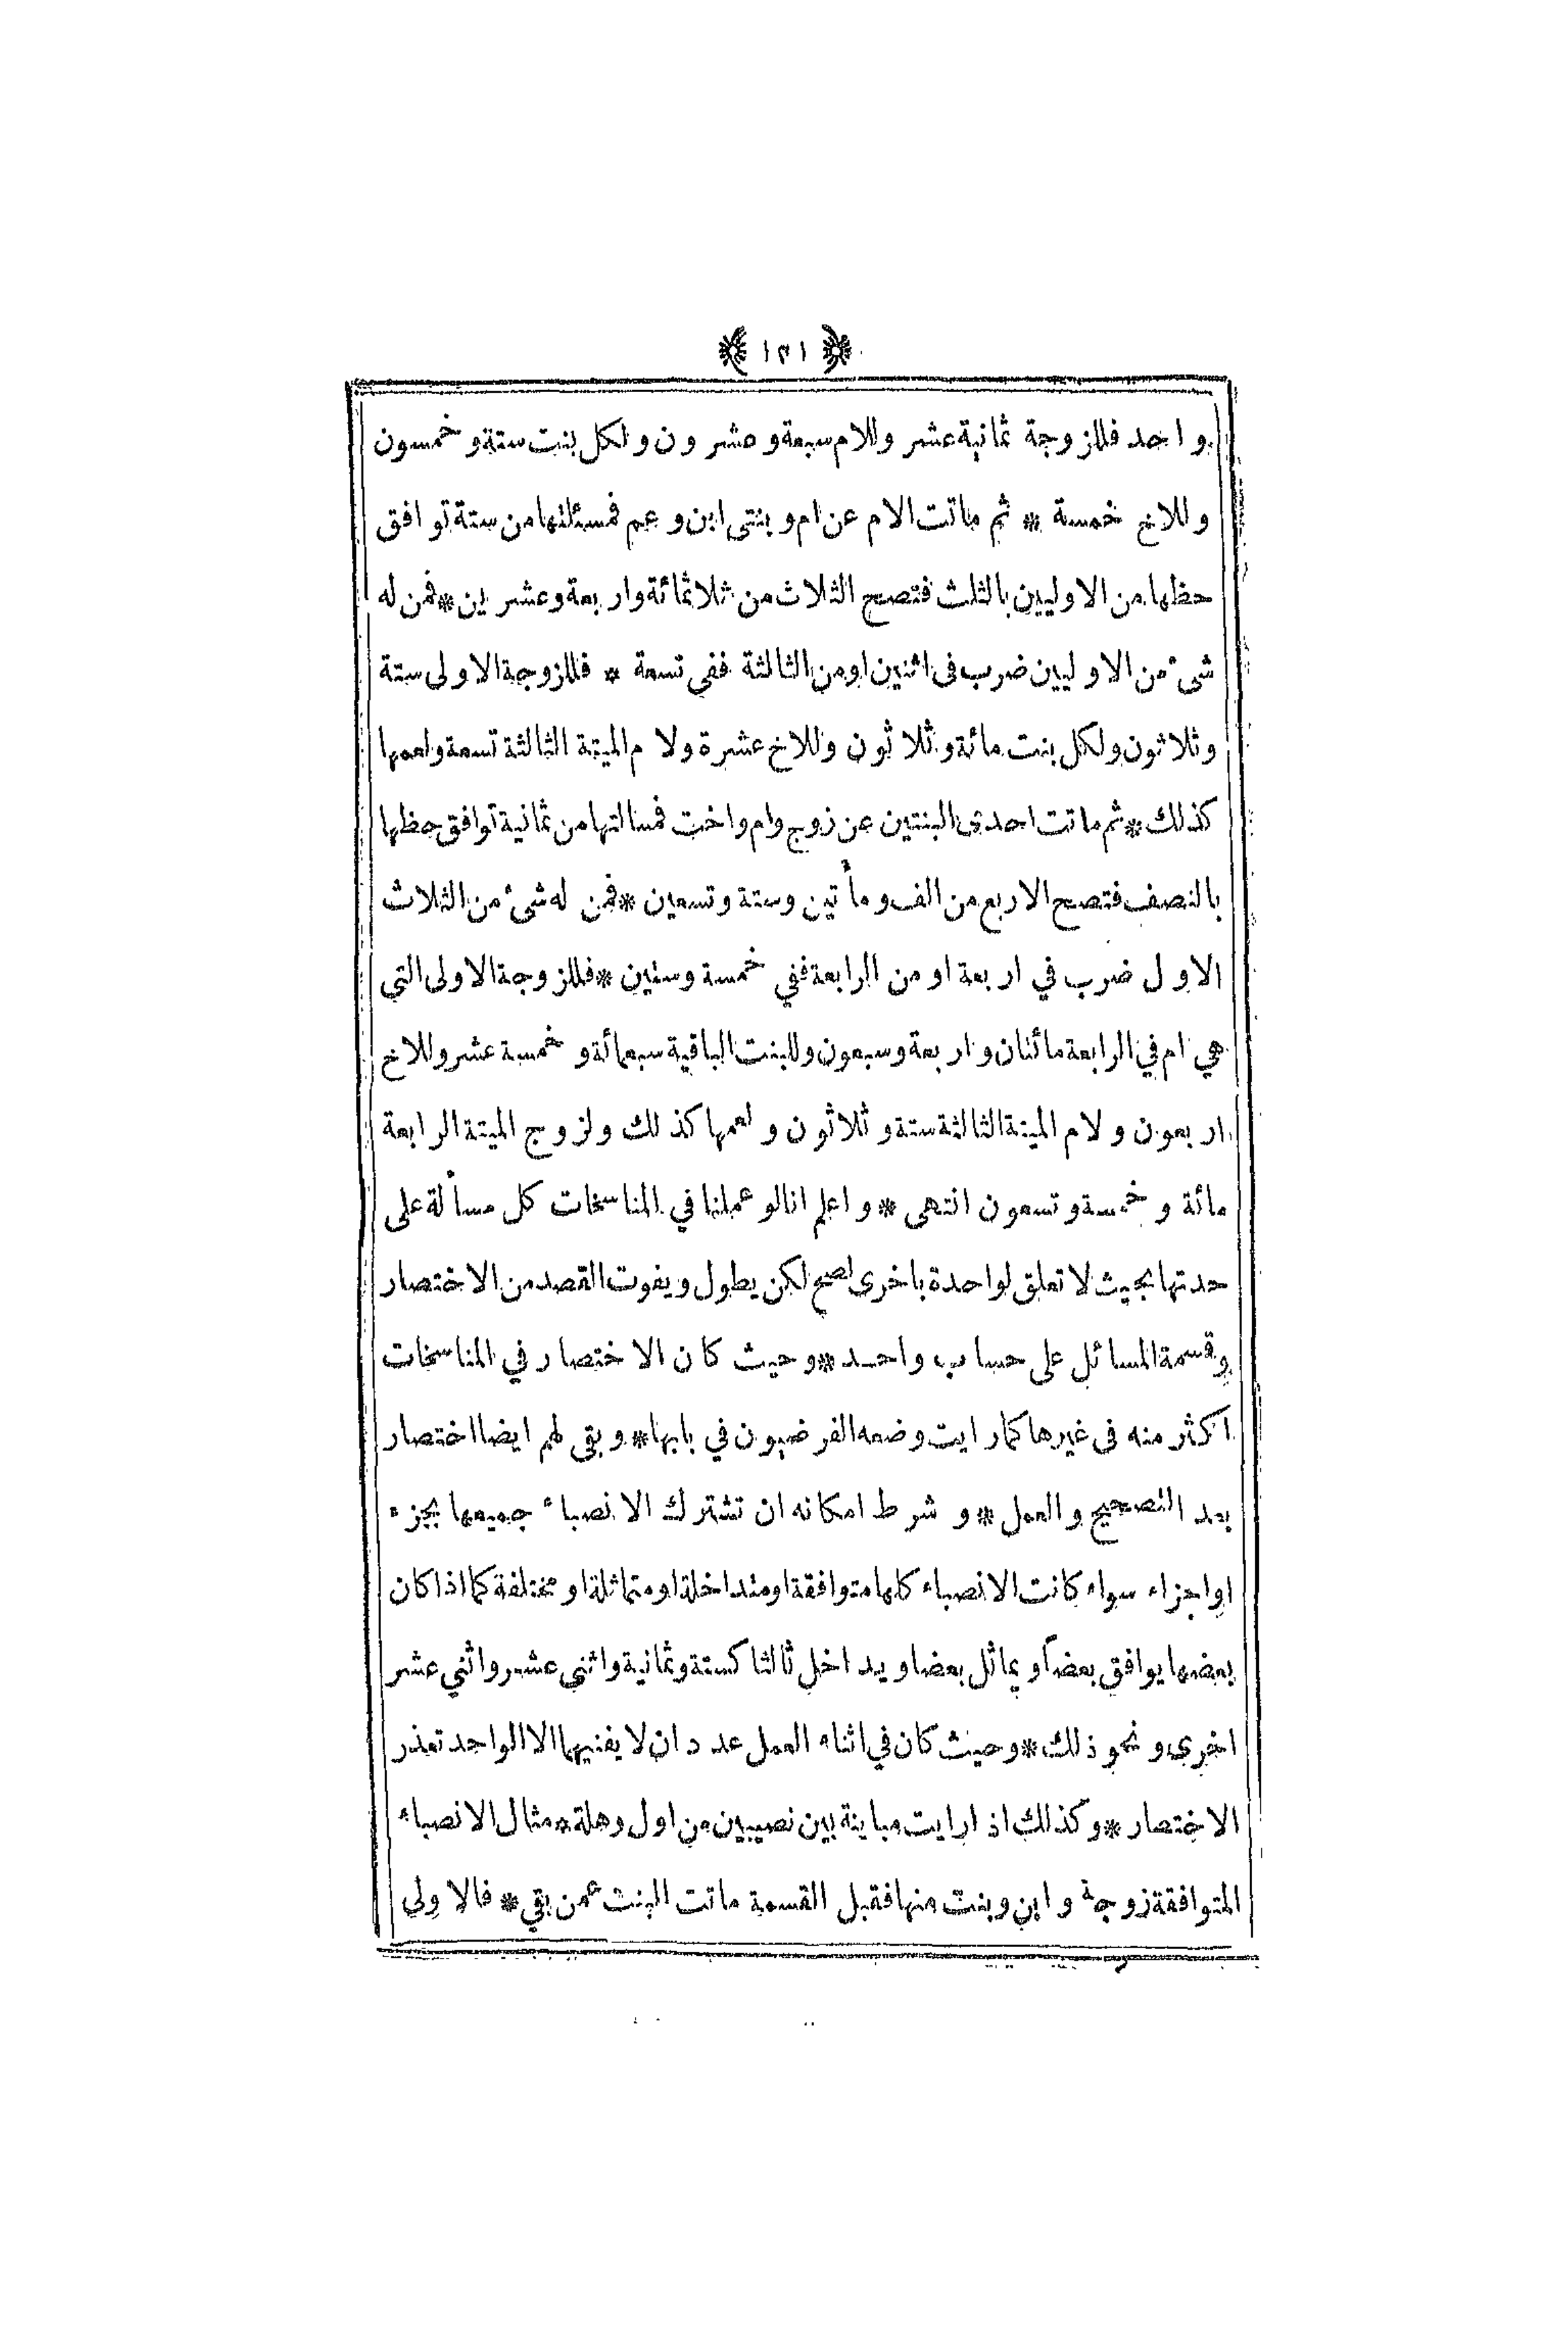 ﴿ ١٢١ ﴾
واحد فللزوجة ثمانية عشر وللام سبعة وعشرون ولكل بنت ستة وخمسون
وللاخ خمسة * ثم ماتت الام عن ام وبنتى ابن وعم فمسئلتها من ستة توافق
حظها من الاوليين بالثلث فتصح الثلاث من ثلاثمائة واربعة وعشرين * فمن له
شىء من الاوليين ضرب فى اثنين او من الثالثة ففي تسعة * فللزوجة الاولى ستة
وثلاثون ولكل بنت مائة وثلاثون وللاخ عشرة ولام الميتة الثالثة تسعة ولعمها
كذلك * ثم ماتت احدى البنتين عن زوج وام واخت فمسالتها من ثمانية توافق حظها
بالنصف فتصح الاربع من الف ومأتين وستة وتسعين * فمن له شىء من الثلاث
الاول ضرب في اربعة او من الرابعة ففي خمسة وستين * فللزوجة الاولى التي
هي ام في الرابعة مائتان واربعة وسبعون وللبنت الباقية سبعمائة وخمسة عشر وللاخ
اربعون ولام الميتة الثالثة ستة وثلاثون ولعمها كذلك ولزوج الميتة الرابعة
مائة وخمسة وتسعون انتهى * واعلم انا لو عملنا في المناسخات كل مسألة على
حدتها بحيث لا تعلق لواحدة باخرى لصح لكن يطول ويفوت القصد من الاختصار
وقسمة المسائل على حساب واحد * وحيث كان الاختصار في المناسخات
اكثر منه فى غيرها كما رايت وضعه الفرضيون في بابها * وبقى لهم ايضا اختصار
بعد التصحيح والعمل * وشرط امكانه ان تشترك الانصباء جميعها بجزء
او اجزاء سواء كانت الانصباء كلها متوافقة او متداخلة او متماثلة او مختلفة كما اذا كان
بعضها يوافق بعضاً ويماثل بعضا ويداخل ثالثا كستة وثمانية واثنى عشر واثني عشر
اخرى ونحو ذلك * وحيث كان في اثناء العمل عددان لا يفنيهما الا الواحد تعذر
الاختصار * وكذلك اذا رايت مباينة بين نصيبين من اول وهلة * مثال الانصباء
المتوافقة زوجة وابن وبنت منها فقبل القسمة ماتت البنت عمن بقي * فالاولى